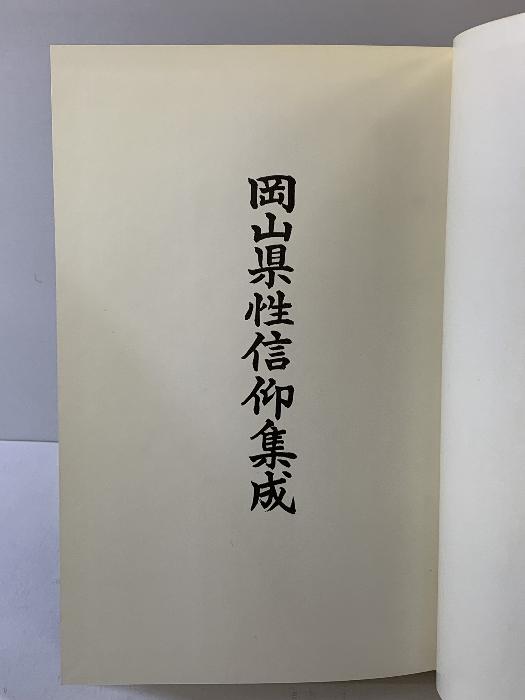 岡山県性信仰集成